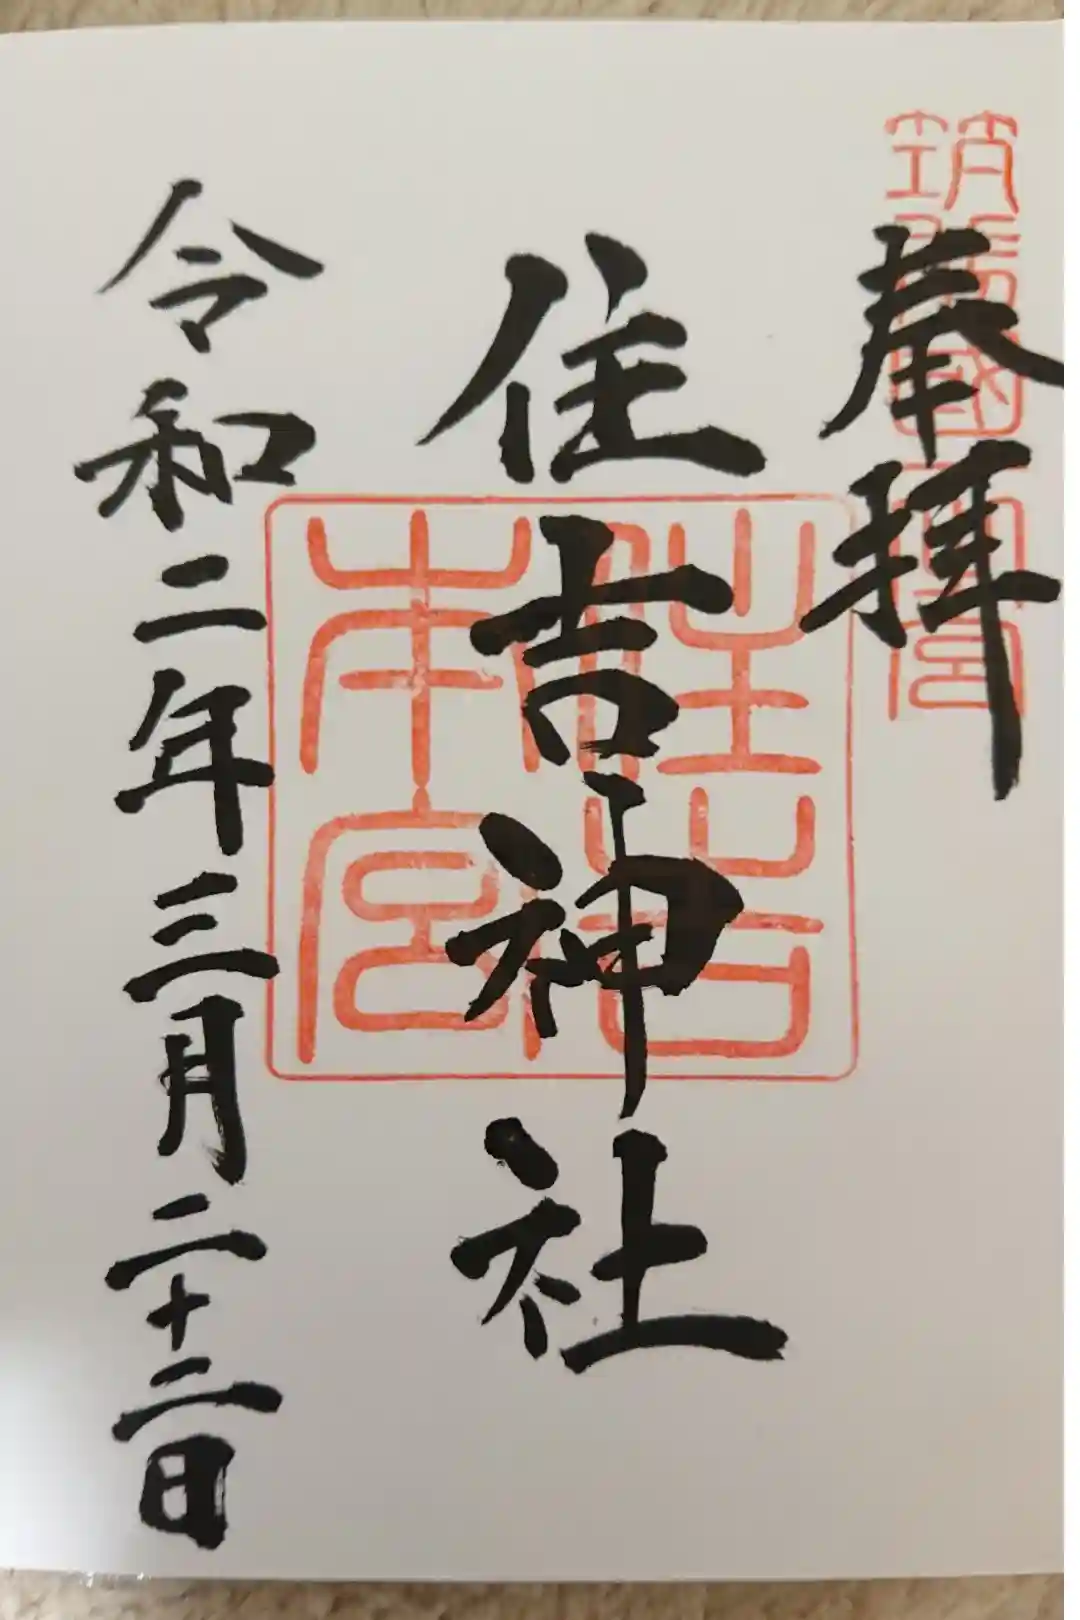 筑前國一宮
奉拝
住吉神社
住吉
本宮
令和二年三月二十二日